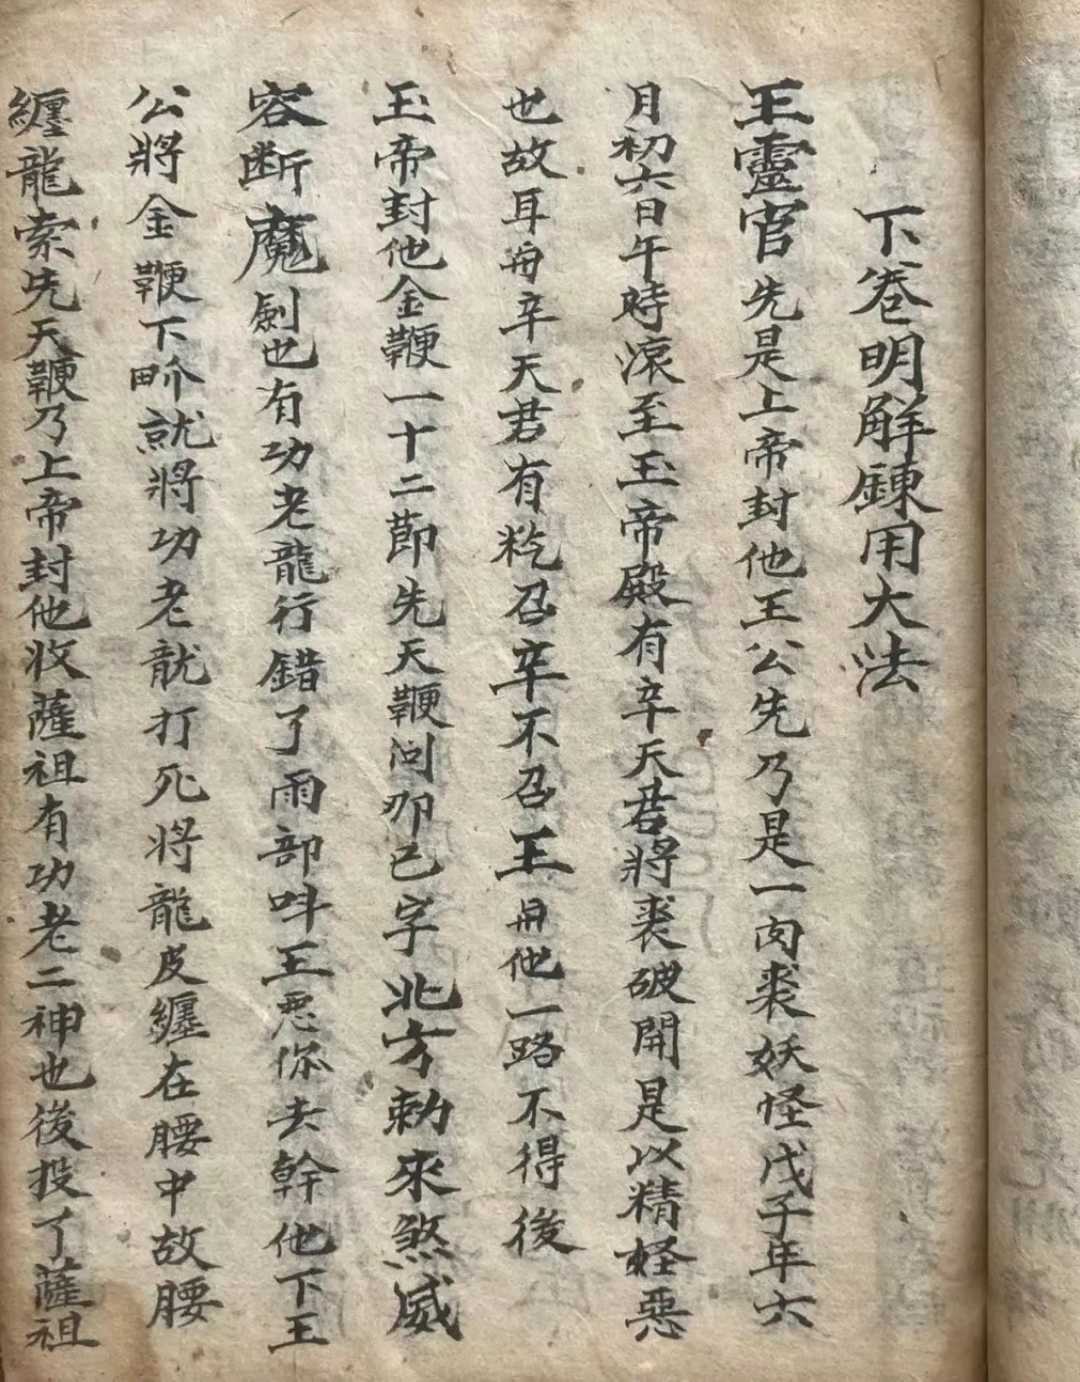 下卷明解鍊用大法
王靈官先是上帝封他王公先乃是一肉裘妖怪戊子年六
月初六日午時滾至玉帝殿有辛天君將裘破開是以精怪惡
也故耳毋辛天君有紇召辛不召王毋他一路不得後
玉帝封他金鞭一十二莭先天鞭问卯已字北方勅來煞威
容断魔劍也有功老龍行錯了雨部呌王恶你去幹他下王
公將金鞭下畍就將功老龍打死将龍皮纏在腰中故腰
纏龍索先天鞭乃上帝封他收薩祖有功老二神也後投了薩祖